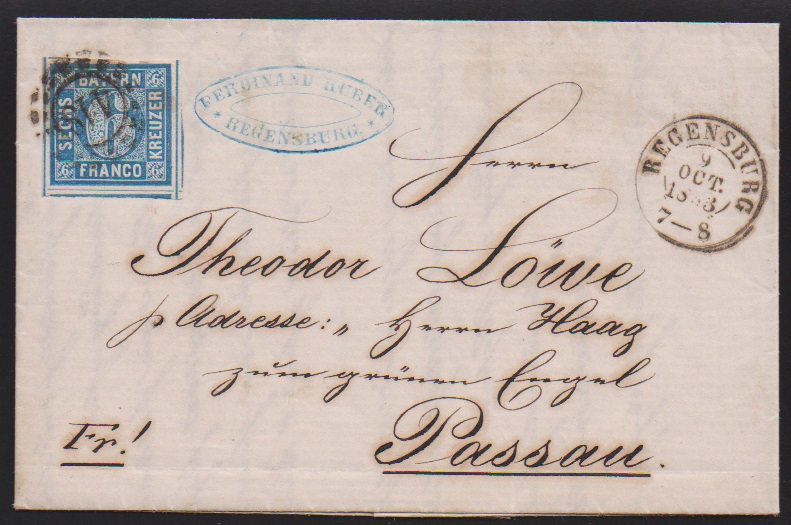 BAYERN
SECHS
KREUZER
FRANCO
6 6 6
FERDINAND HUBER
* REGENSBURG. *
REGENSBURG
9
OCT.
7-8
Herrn
Theodor Löwe
p Adresse: „ Herrn Haag
zum grünen Engel
Passau.
Fr!